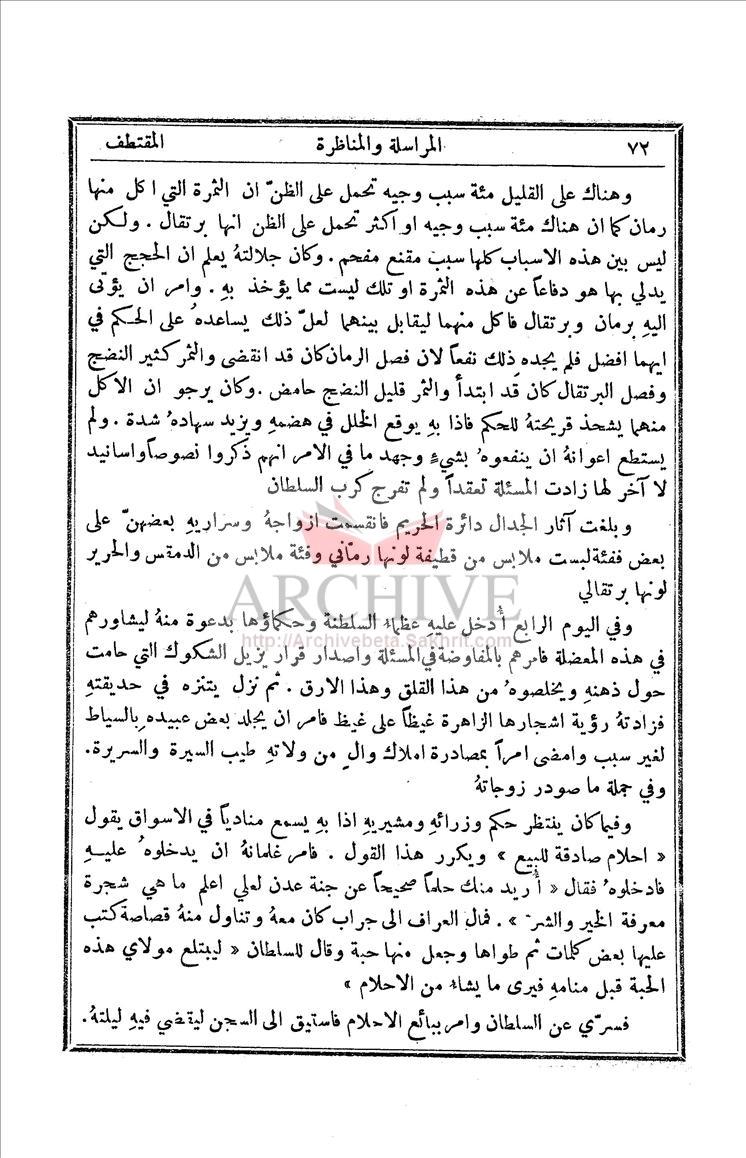 ٧٢ المراسلة والمناظرة المقتطف
وهناك على القليل مئة سبب وجيه تحمل على الظنّ ان الثمرة التي اكل منها
رمان كما ان هناك مئة سبب وجيه او اكثر تحمل على الظن انها برتقال . ولكن
ليس بين هذه الاسباب كلها سبب مقنع مفحم . وكان جلالتهُ يعلم ان الحجج التي
يدلي بها هو دفاعاً عن هذه الثمرة او تلك ليست مما يؤخذ بهِ . وامر ان يؤتى
اليهِ برمان وبرتقال فاكل منهما ليقابل بينهما لعلّ ذلك يساعدهُ على الحكم في
ايهما افضل فلم يجدهِ ذلك نفعاً لان فصل الرمان كان قد انقضى والثمر كثير النضج
وفصل البرتقال كان قد ابتدأ والثمر قليل النضج حامض . وكان يرجو ان الاكل
منهما يشحذ قريحتهُ للحكم فاذا بهِ يوقع الخلل في هضمهِ ويزيد سهادهُ شدة . ولم
يستطع اعوانهُ ان ينفعوهُ بشيءٍ وجهد ما في الامر انهم ذكروا نصوصاً واسانيد
لا آخر لها زادت المسئلة تعقداً ولم تفرج كرب السلطان
وبلغت آثار الجدال دائرة الحريم فانقسمت ازواجهُ وسراريهِ بعضهنّ على
بعض ففئة لبست ملابس من قطيفة لونها رمّاني وفئة ملابس من الدمقس والحرير
لونها برتقالي
ARCHIVE
http://Archivebeta.Sakhrit.com
وفي اليوم الرابع أُدخل عليهِ عظماء السلطنة وحكماؤها بدعوة منهُ ليشاورهم
في هذه المعضلة فامرهم بالمفاوضة في المسئلة واصدار قرار يزيل الشكوك التي حامت
حول ذهنهِ ويخلصوهُ من هذا القلق وهذا الارق . ثم نزل يتنزه في حديقتهِ
فزادتهُ رؤية اشجارها الزاهرة غيظاً على غيظ فامر ان يجلد بعض عبيدهِ بالسياط
لغير سبب وامضى امراً بمصادرة املاك والٍ من ولاتهِ طيب السيرة والسريرة.
وفي جملة ما صودر زوجاتهُ
وفيما كان ينتظر حكم وزرائهِ ومشيريهِ اذا بهِ يسمع منادياً في الاسواق يقول
« احلام صادقة للبيع » ويكرر هذا القول . فامر غلمانهُ ان يدخلوهُ عليهِ
فادخلوهُ فقال « أُريد منك حلماً صحيحاً عن جنة عدن لعلي اعلم ما هي شجرة
معرفة الخير والشرّ » . فمال العراف الى جراب كان معهُ وتناول منهُ قصاصة كتب
عليها بعض كلمات ثم طواها وجعل منها حبة وقال للسلطان « ليبتلع مولاي هذه
الحبة قبل منامهِ فيرى ما يشاءُ من الاحلام »
فسرّي عن السلطان وامر ببائع الاحلام فاستيق الى السجن ليقضي فيهِ ليلتهُ.